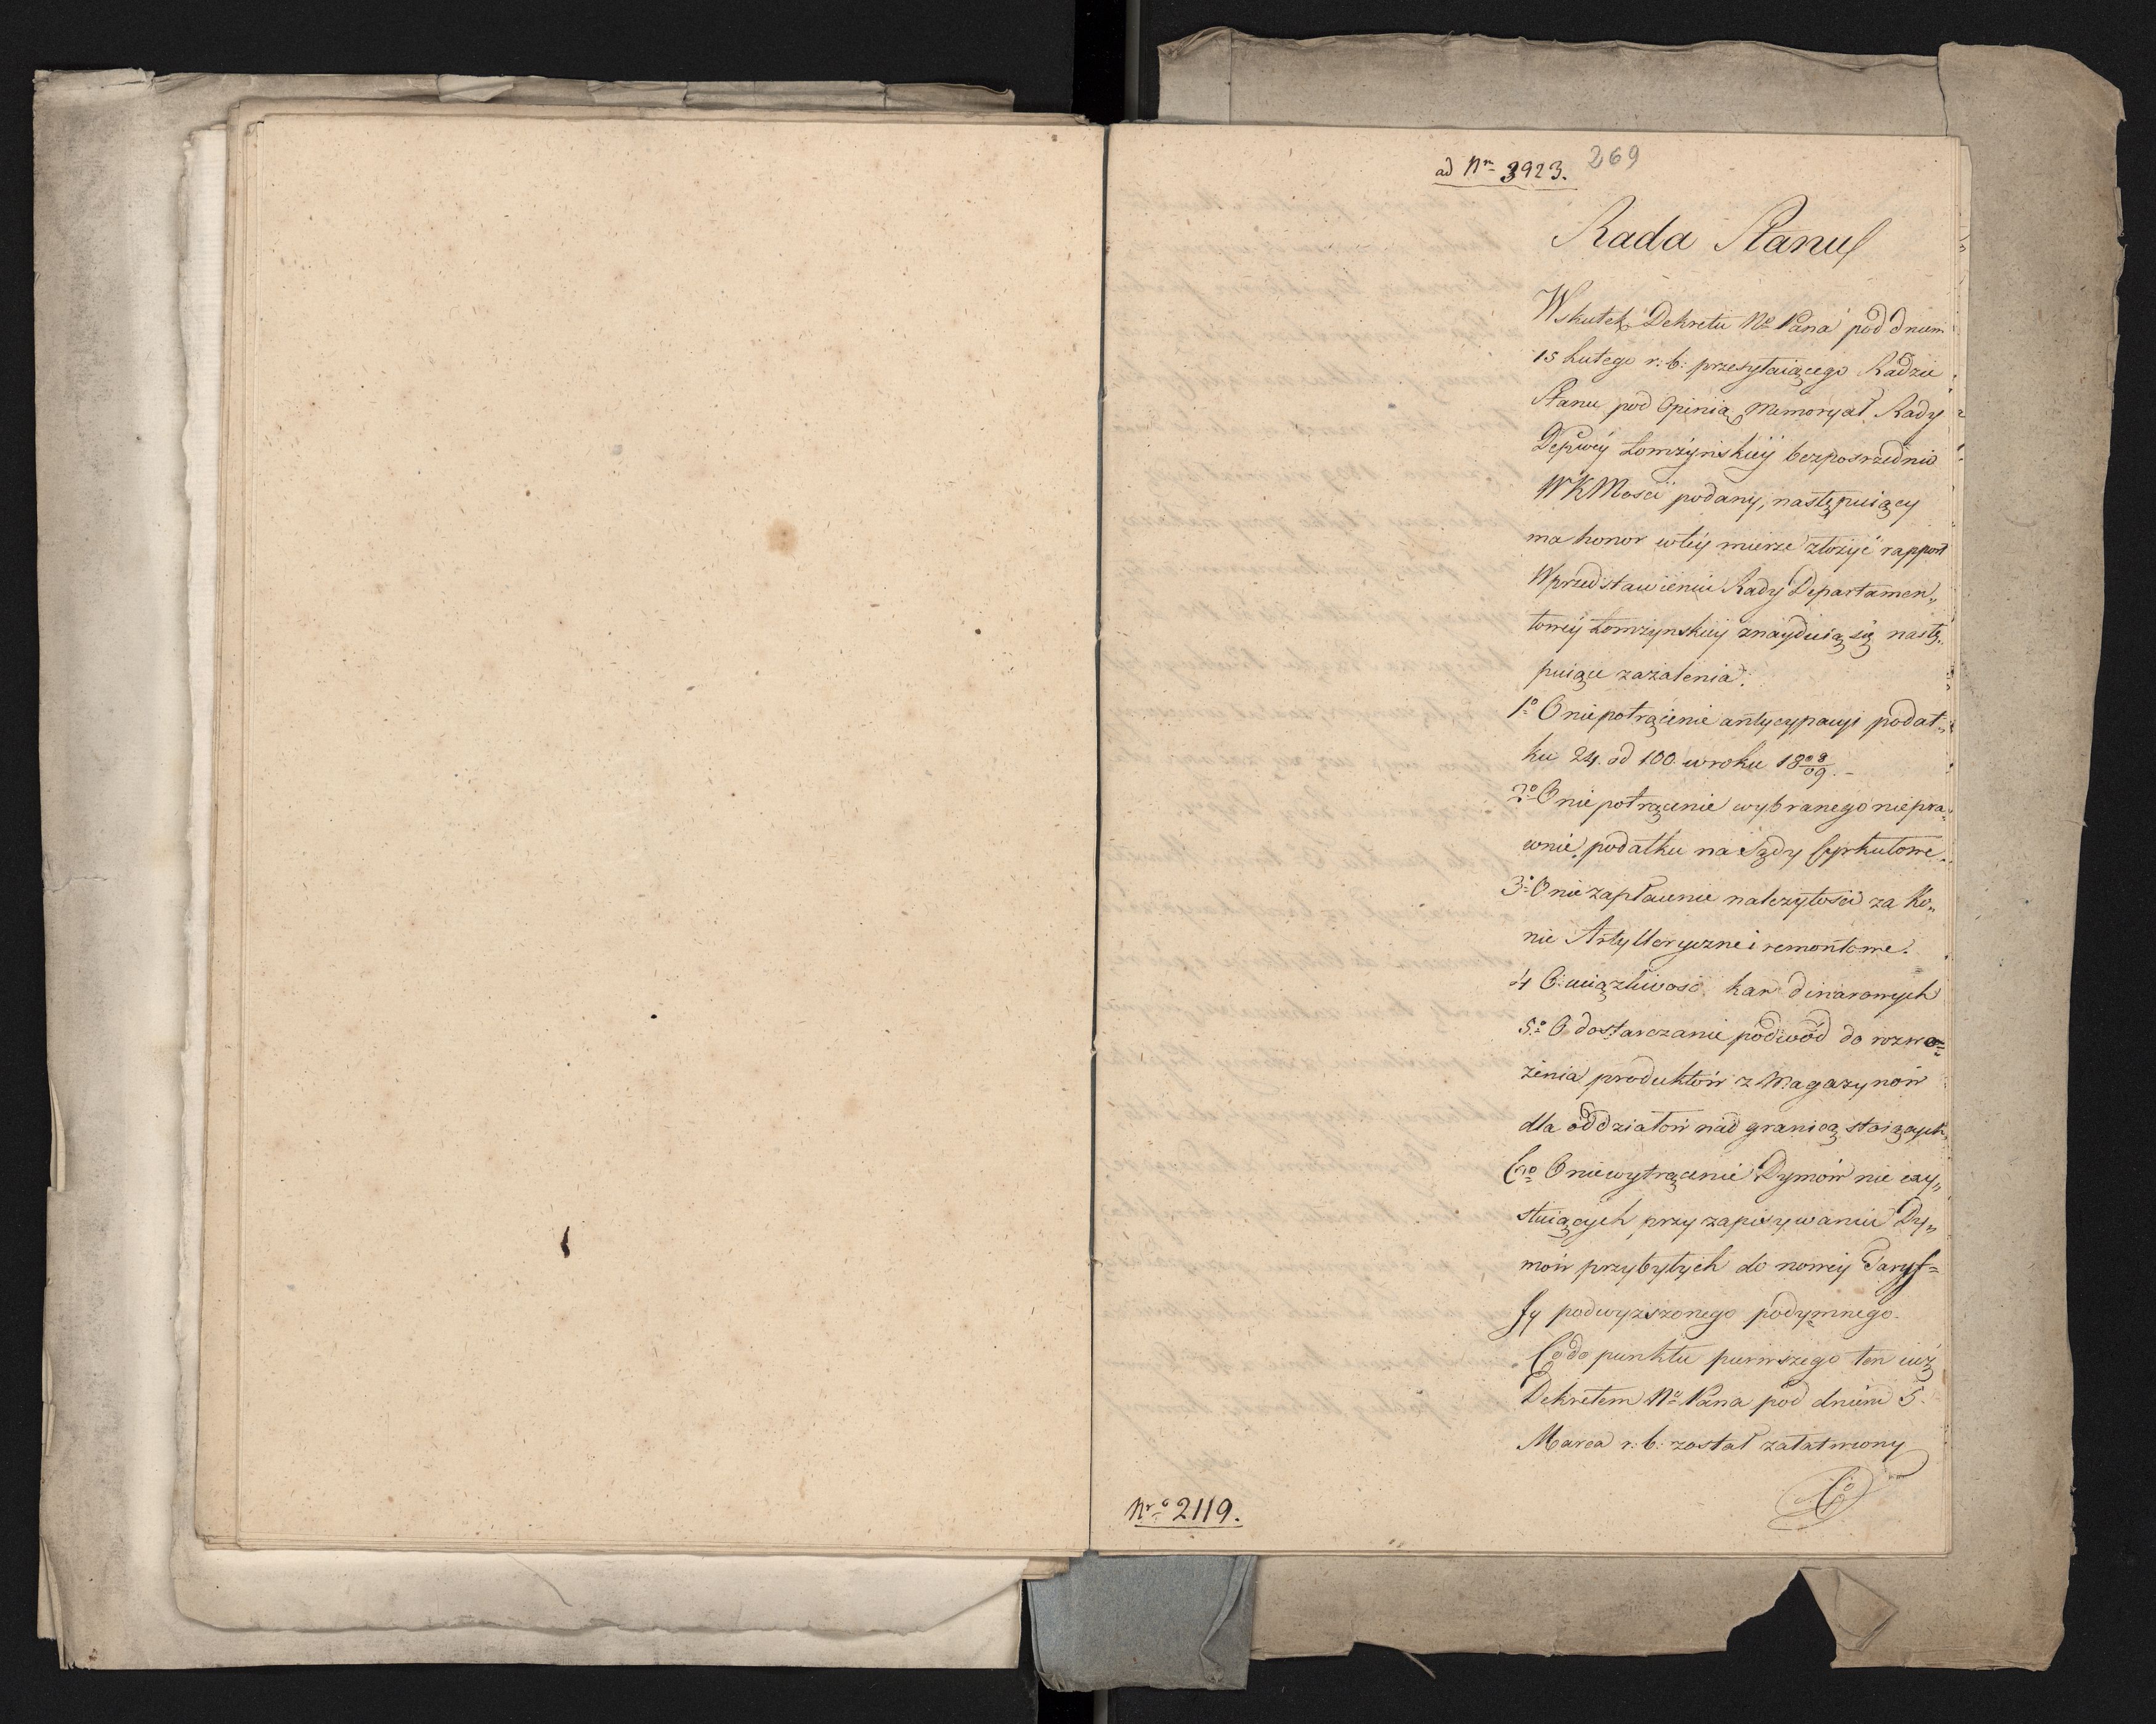 ad Nrn 3923. 269
Rada Stanu
Wskutek Dekretu No Pana pod dniem
15 Lutego r: b: przesyłaiącego Radzie
Stanu pod Opinią Memoryał Rady
Depwey Łomżyńskiey bezpośrednio
WKMosci podany, następuiący
ma honor wtey mierze złożyć rapport
Wprzedstawieniu Rady Departamen„
towey Łomżyńskiey znayduią się nastę„
puiące zażalenia:
1o O niepotrącenie antycypacyi podat„
ku 24. od 100. w roku 1808/09. –
2o O niepotrącenie wybranego niepra„
wnie podatku na Sądy Cyrkułowe.
3o O niezapłacenie należytości za Ko„
nie Artylleryczne i remontowe.
4 O uciążliwość kar
5o O dostarczanie podwód do rozwo=
żenia produktów z Magazynów
dla oddziałów nad granicą stoiących
6o O niewytrącenie Dymów nie exy„
stuiących przy zapisywaniu Dy„
mów przybyłych do nowey Taryf=
fy podwyższonego podymnego.
Co do punktu pierwszego ten iuż
Dekretem No Pana pod dniem 5.
Marca r: b: został załatwiony
Co
Nro 2119.